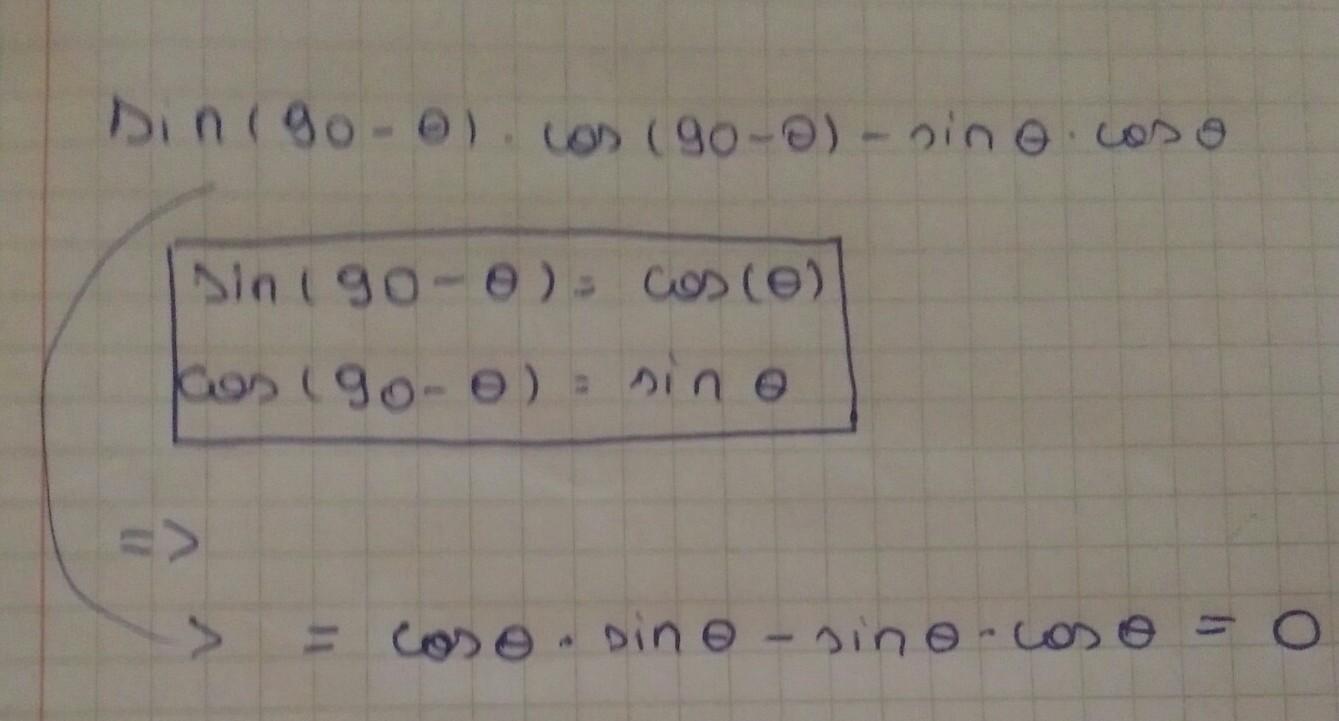 sin(90-θ). cos(90-θ) - sinθ. cosθ
sin(90-θ) = cos(θ)
cos(90-θ) = sin θ
=>
> = cosθ. sinθ - sinθ. cosθ = 0